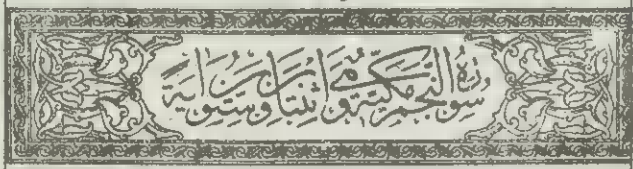 سورة النجم مكية وهي اثنتان وستون آية